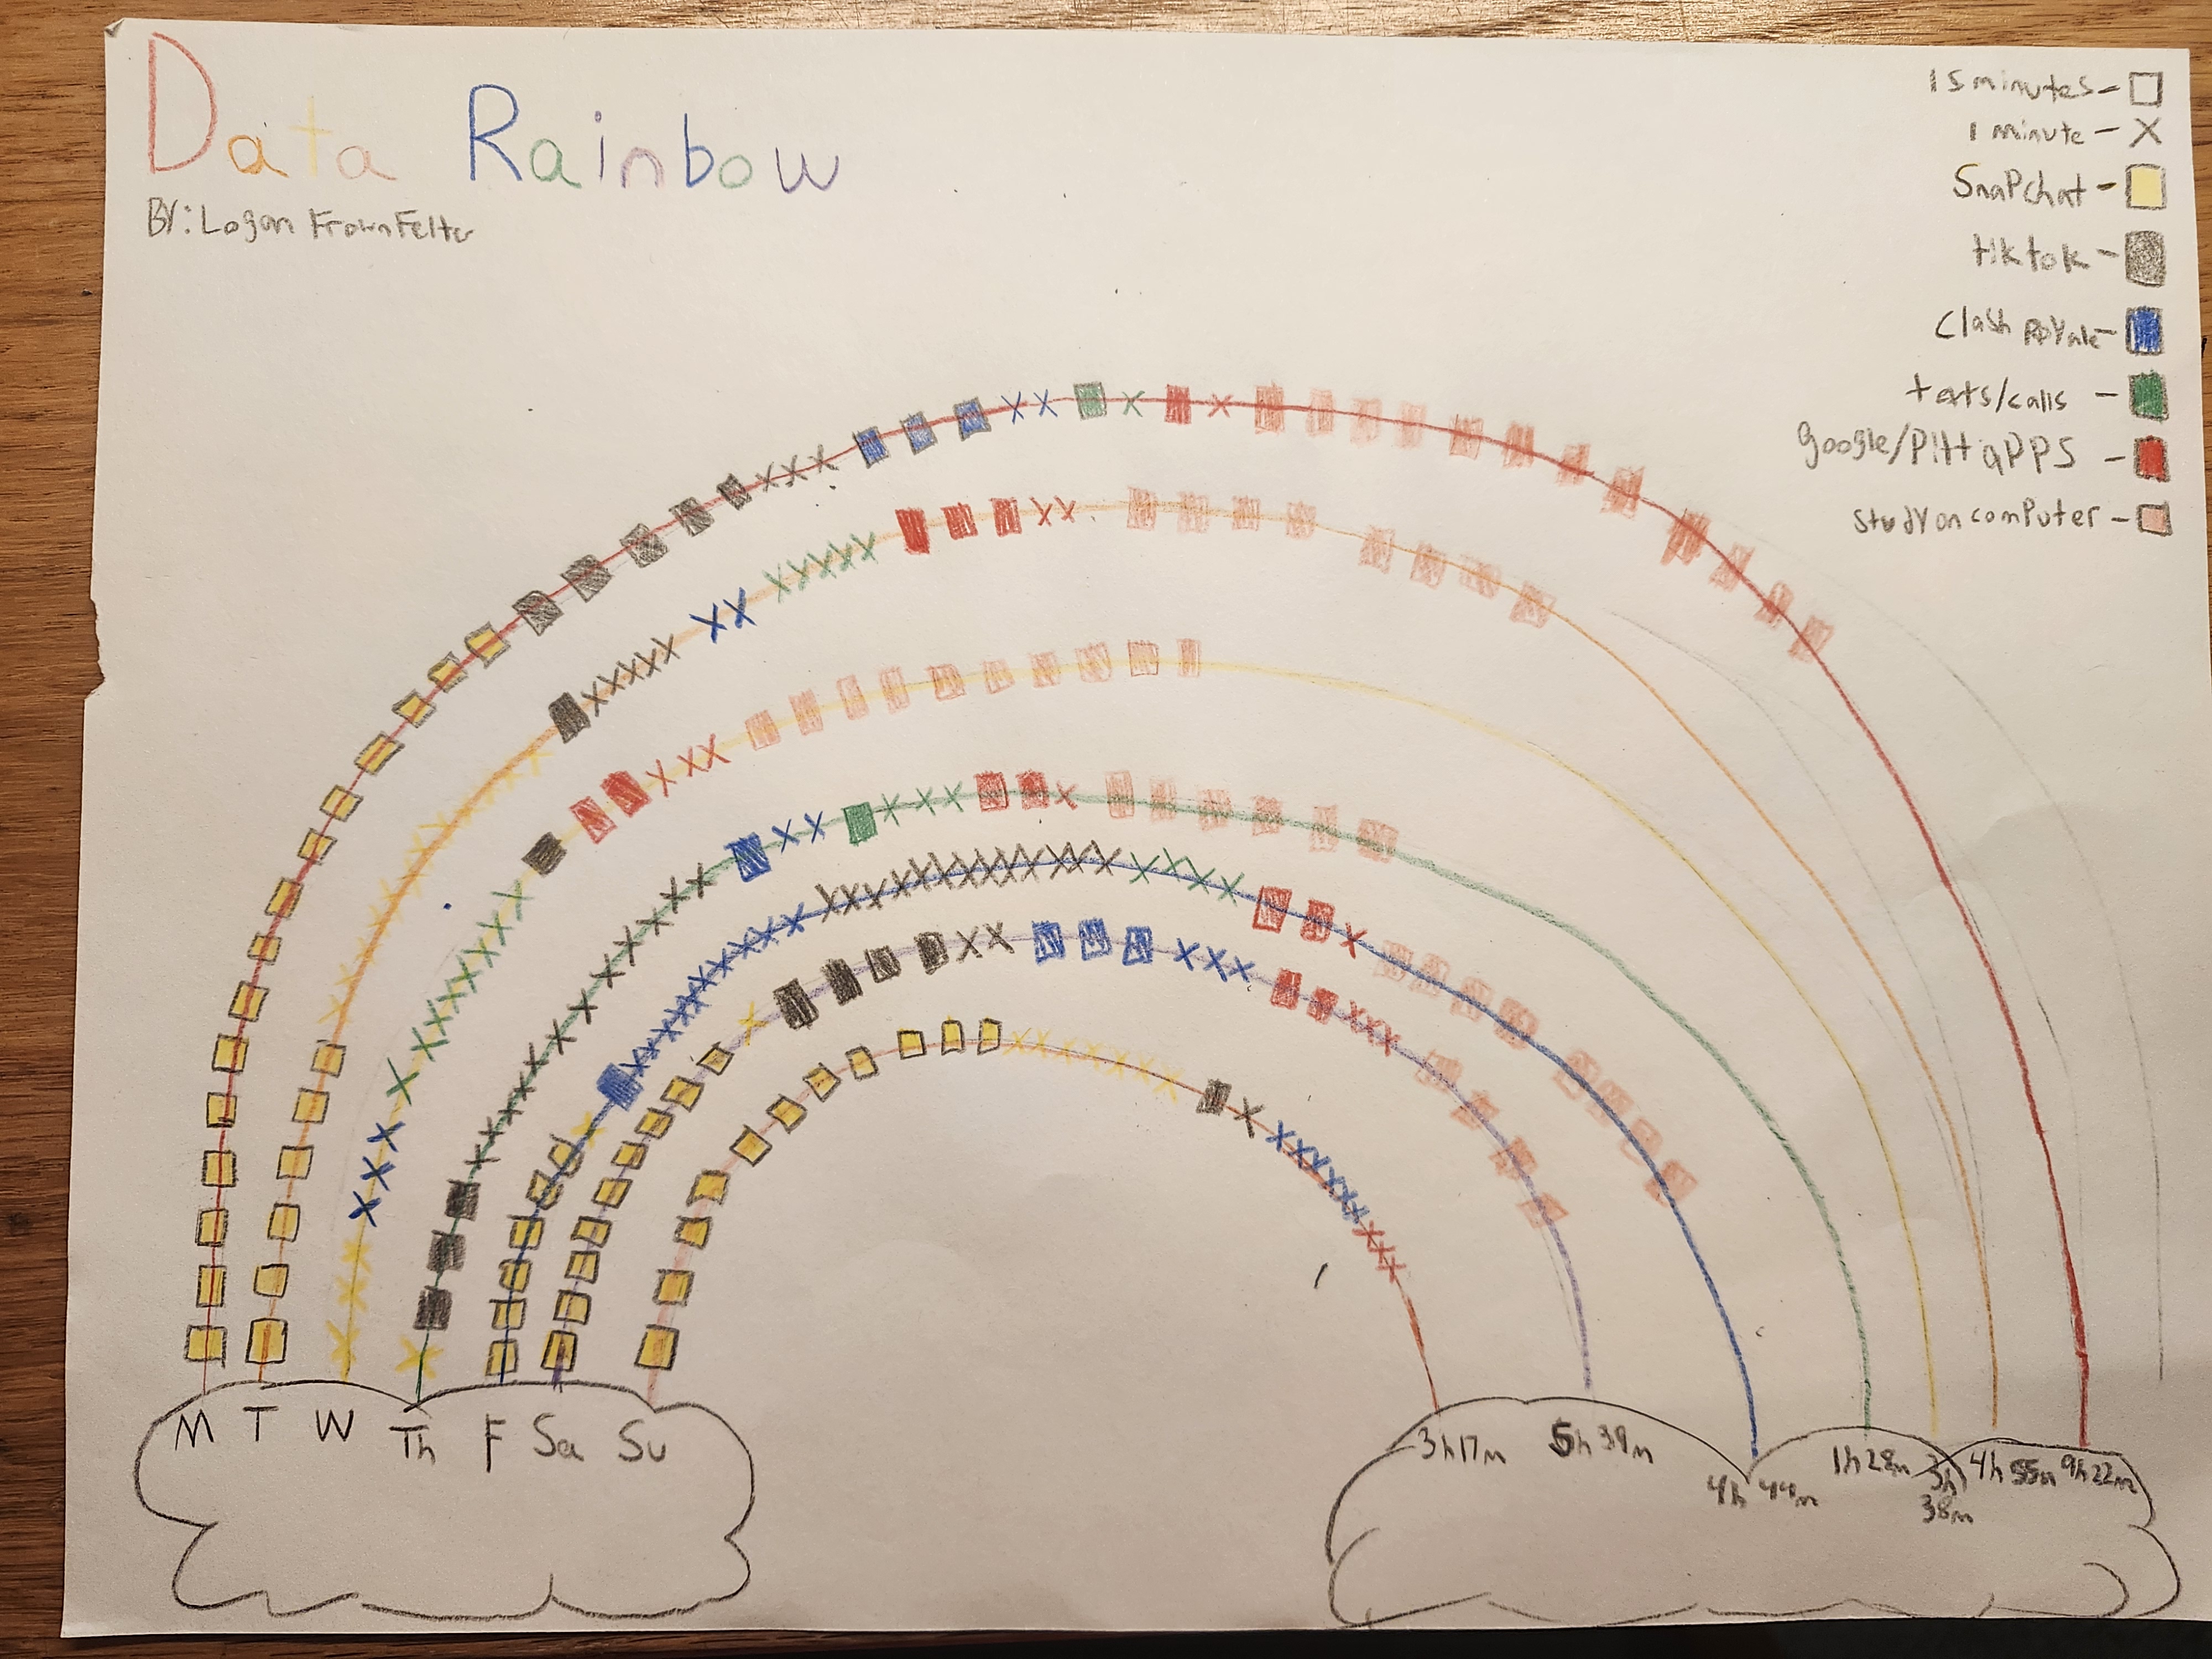 Data Rainbow
BY: Logan FrownFelter
15 minutes - □
1 minute - X
SnaPchat -
tiktok -
Clash royale -
texts/calls -
google/Pitt apps -
study on computer -
M T W Th F Sa Su
3h17m 5h39m 4h 44m 1h28m 3h 38m 4h55m 9h22m